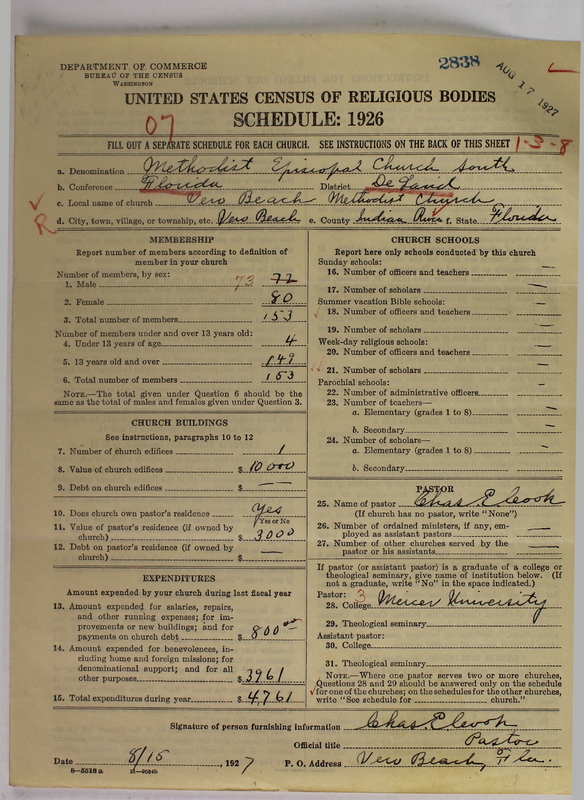 DEPARTMENT OF COMMERCE
BUREAU OF THE CENSUS
WASHINGTON
2838
AUG 17 1927
UNITED STATES CENSUS OF RELIGIOUS BODIES
SCHEDULE: 1926
07
FILL OUT A SEPARATE SCHEDULE FOR EACH CHURCH. SEE INSTRUCTIONS ON THE BACK OF THIS SHEET 1-3-8
a. Denomination Methodist Episcopal Church South
b. Conference Florida District De Land
c. Local name of church Vero Beach Methodist Church
R
d. City, town, village, or township, etc. Vero Beach e. County Indian River f. State Florida
MEMBERSHIP
Report number of members according to definition of member in your church
Number of members, by sex:
1. Male 73 77
2. Female 80
3. Total number of members 153
Number of members under and over 13 years old:
4. Under 13 years of age 4
5. 13 years old and over 149
6. Total number of members 153
NOTE.—The total given under Question 6 should be the same as the total of males and females given under Question 3.
CHURCH BUILDINGS
See instructions, paragraphs 10 to 12
7. Number of church edifices 1
8. Value of church edifices $ 10000
9. Debt on church edifices $ —
10. Does church own pastor's residence Yes
(Yes or No)
11. Value of pastor's residence (if owned by
church) $ 3000
12. Debt on pastor's residence (if owned by
church) $ —
EXPENDITURES
Amount expended by your church during last fiscal year
13. Amount expended for salaries, repairs,
and other running expenses; for im-
provements or new buildings; and for
payments on church debt $ 800 00
14. Amount expended for benevolences, in-
cluding home and foreign missions; for
denominational support; and for all
other purposes $ 3961
15. Total expenditures during year $ 4761
CHURCH SCHOOLS
Report here only schools conducted by this church
Sunday schools:
16. Number of officers and teachers —
17. Number of scholars —
Summer vacation Bible schools:
18. Number of officers and teachers —
19. Number of scholars —
Week-day religious schools:
20. Number of officers and teachers —
21. Number of scholars —
Parochial schools:
22. Number of administrative officers —
23. Number of teachers—
a. Elementary (grades 1 to 8) —
b. Secondary —
24. Number of scholars—
a. Elementary (grades 1 to 8) —
b. Secondary —
PASTOR
25. Name of pastor Chas E. Cook
(If church has no pastor, write "None")
26. Number of ordained ministers, if any, em-
ployed as assistant pastors —
27. Number of other churches served by the
pastor or his assistants —
If pastor (or assistant pastor) is a graduate of a college or
theological seminary, give name of institution below. (If
not a graduate, write "No" in the space indicated.)
Pastor: 3
28. College Mercer University
29. Theological seminary
Assistant pastor:
30. College
31. Theological seminary
NOTE.—Where one pastor serves two or more churches,
Questions 28 and 29 should be answered only on the schedule
for one of the churches; on the schedules for the other churches,
write "See schedule for church."
Signature of person furnishing information Chas. E. Cook
Official title Pastor
Date 8/15, 1927 P. O. Address Vero Beach, Fla.
8—5518 a